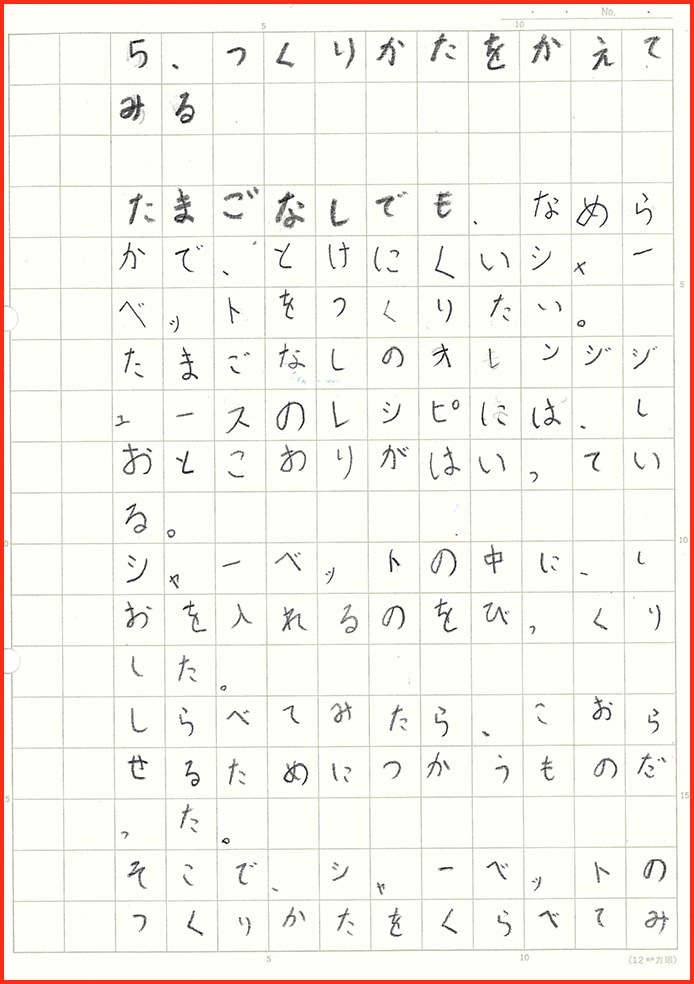 No.
5
10
5、つくりかたをかえて
みる
たまごなしでも、なめら
かで、とけにくいシャー
ベットをつくりたい。
たまごなしのオレンジジ
ュースのレシピには、し
おとこおりがはいってい
る。
シャーベットの中に、し
おを入れるのをびっくり
した。
しらべてみたら、こおら
せるためにつかうものだ
った。
そこで、シャーベットの
つくりかたをくらべてみ
5
10
15
5
10